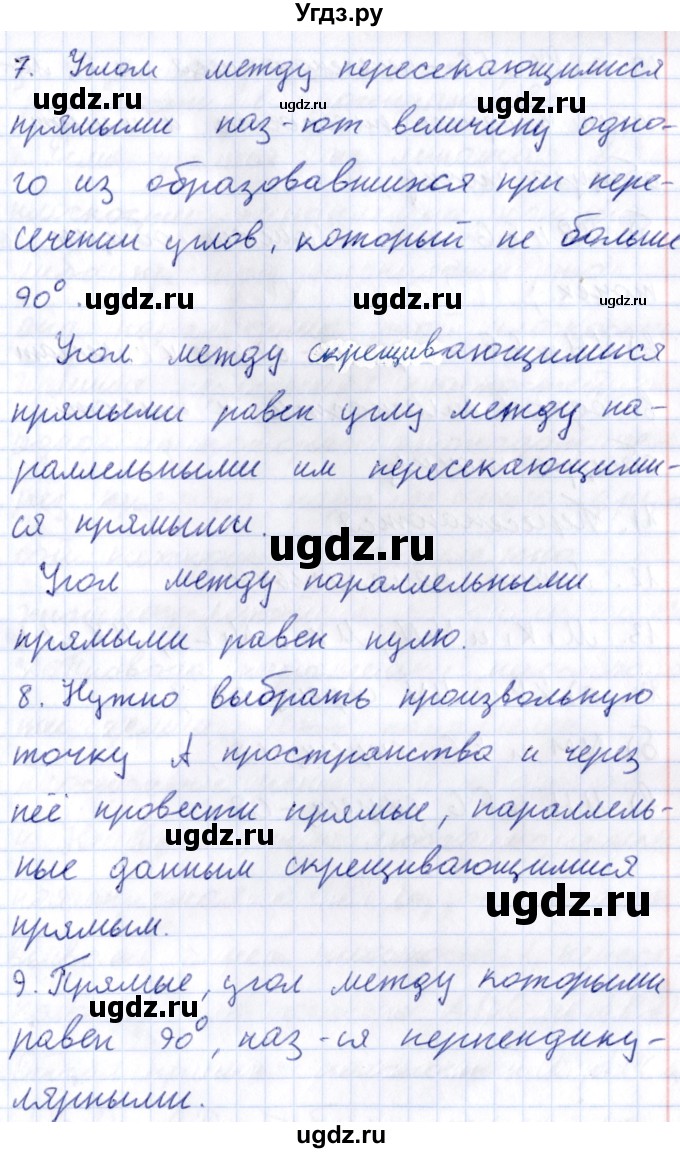 Угдз.ру
7. Углом между пересекающимися
ugdz.ru ugdz.ru ugdz.ru
прямыми наз-ют величину одно-
го из образовавшихся при пере-
сечении углов, который не больше
90°.
ugdz.ru ugdz.ru ugdz.ru
Угол между скрещивающимися
прямыми равен углу между па-
раллельными им пересекающими-
ся прямыми.
ugdz.ru
Угол между параллельными
прямыми равен нулю.
8. Нужно выбрать произвольную
точку A пространства и через
неё провести прямые, параллель-
ugdz.ru
ные данным скрещивающимися
ugdz.ru
прямым.
9. Прямые, угол между которыми
ugdz.ru
равен 90°, наз-ся перпендику-
лярными.
ugdz.ru